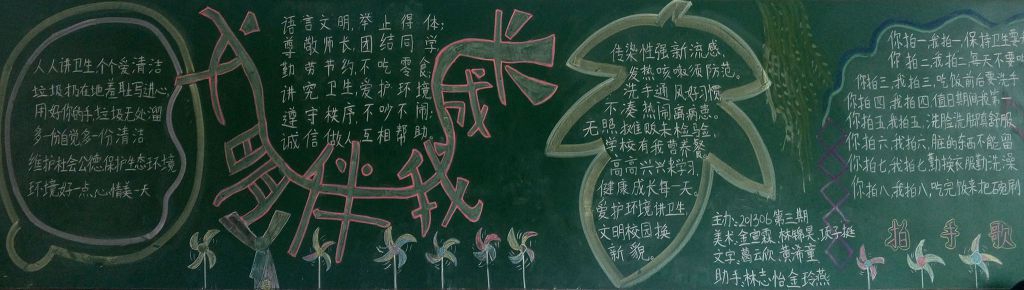 人人讲卫生,个个爱清洁
垃圾扔在地,羞耻写进心
用好你的手,垃圾无处溜
多一份自觉多一份清洁
维护社会公德,保护生态环境
环境好一点,心情美一天
文明伴我成长
语言文明,举止得体;
尊敬师长,团结同学
勤劳节约,不吃零食
讲究卫生,爱护环境
遵守秩序,不吵不闹;
诚信做人,互相帮助。
传染性强新流感,
发热咳嗽须防范。
洗手通风好习惯,
不凑热闹离病患。
无照摊贩未检验,
学校有我营养餐。
高高兴兴来学习,
健康成长每一天。
爱护环境讲卫生
文明校园换
新貌。
主办:201306第三期
美术:金雪霖,林聊昊,项子挺
文字:葛云欣,黄沛童
助手:林志怡金玲燕
你拍一,我拍一,保持卫生要
你拍二,我拍二,每天不要
你拍三,我拍三,吃饭前后要洗手
你拍四,我拍四,值日期间我第一
你拍五,我拍五,洗脸洗脚踏舒服
你拍六,我拍六,脏的东西不能留
你拍七,我拍七,勤换衣服勤洗澡
你拍八,我拍八,吃完饭来把碗刷
拍手歌